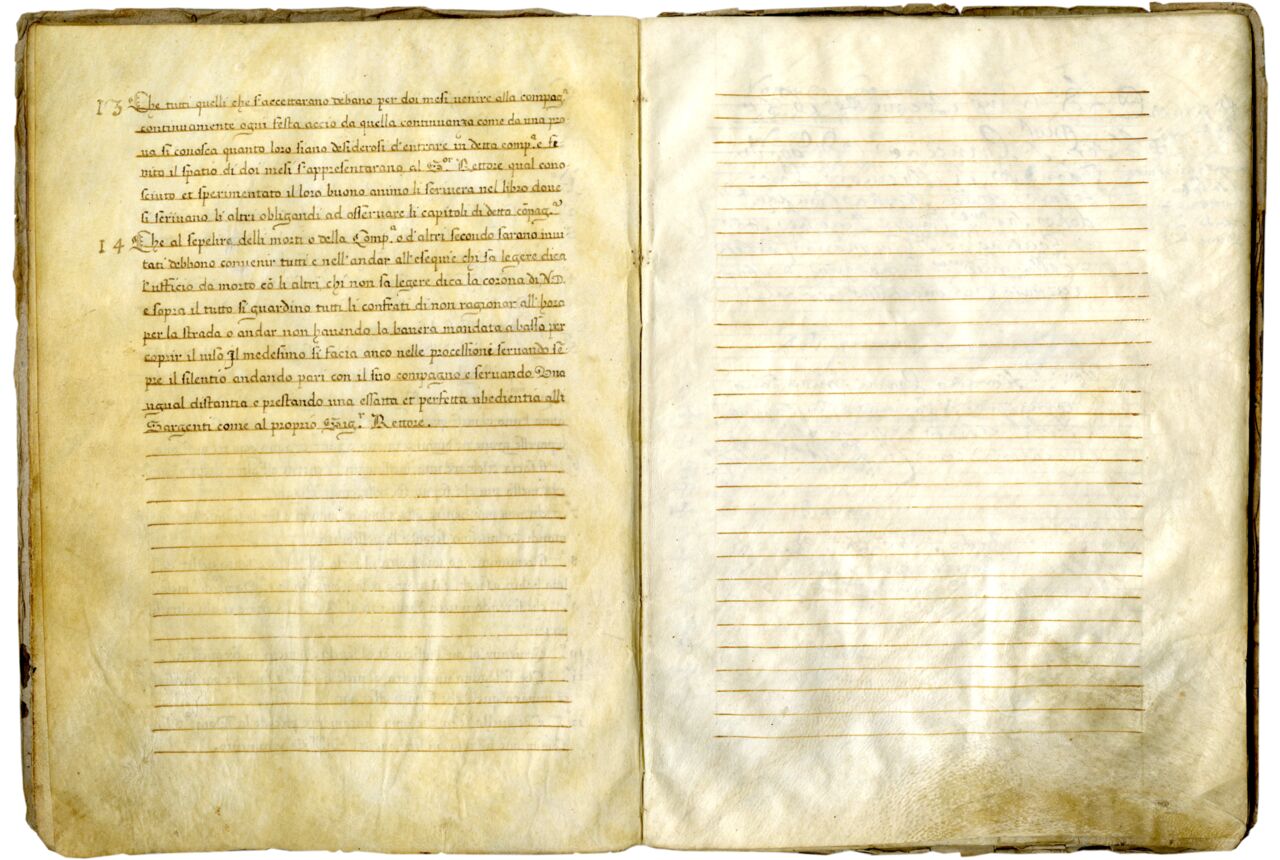 13 Che tutti quelli che s'accettarano debano per doi mesi uenire alla compag.ª
continuamente ogni festa accio da quella continuanza come da una pro
ua si conosca quanto loro siano desiderosi d'entrare in detta comp.ª e fi
nito il spatio di doi mesi s'appresentarano al S.ºʳ Rettore qual cono
sciuto et sperimentato il loro buono animo li scriuera nel libro doue
si scriuano li altri obligandi ad osseruare li capitoli di detta cōpag.ª
14 Che al sepelire delli morti o della Comp.ª o d'altri secondo sarano inui
tati debbono conuenir tutti e nell'andar all'esequie chi sa legere dica
l'ufficio da morto cō li altri chi non sa legere dica la corona di N.D.
e sopra il tutto si guardino tutti li confrati di non ragionar all'hora
per la strada o andar non hauendo la bauera mandata a basso per
coprir il uiso Il medesimo si facia anco nelle processioni seruando sē
pre il silentio andando pari con il suo compagno e seruando Una
ugual distantia e prestando una essatta et perfetta ubedientia alli
Sargenti come al proprio Rettore.